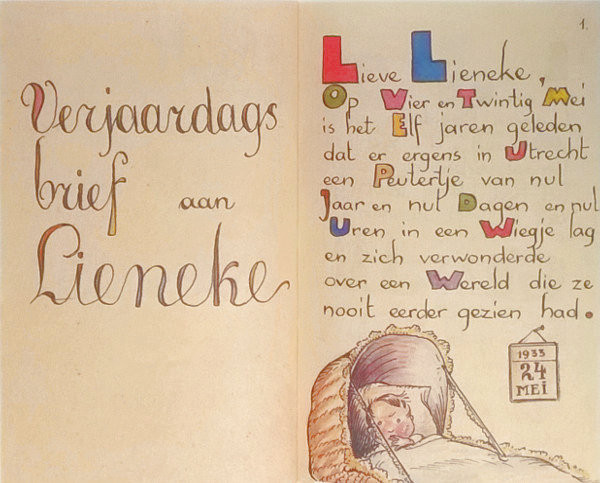 Verjaardags
brief aan
Lieneke
1.
Lieve Lieneke,
Op Vier en Twintig Mei
is het Elf jaren geleden
dat er ergens in Utrecht
een Peutertje van nul
Jaar en nul Dagen en nul
Uren in een Wiegje lag
en zich verwonderde
over een Wereld die ze
nooit eerder gezien had.
1933
24
MEI